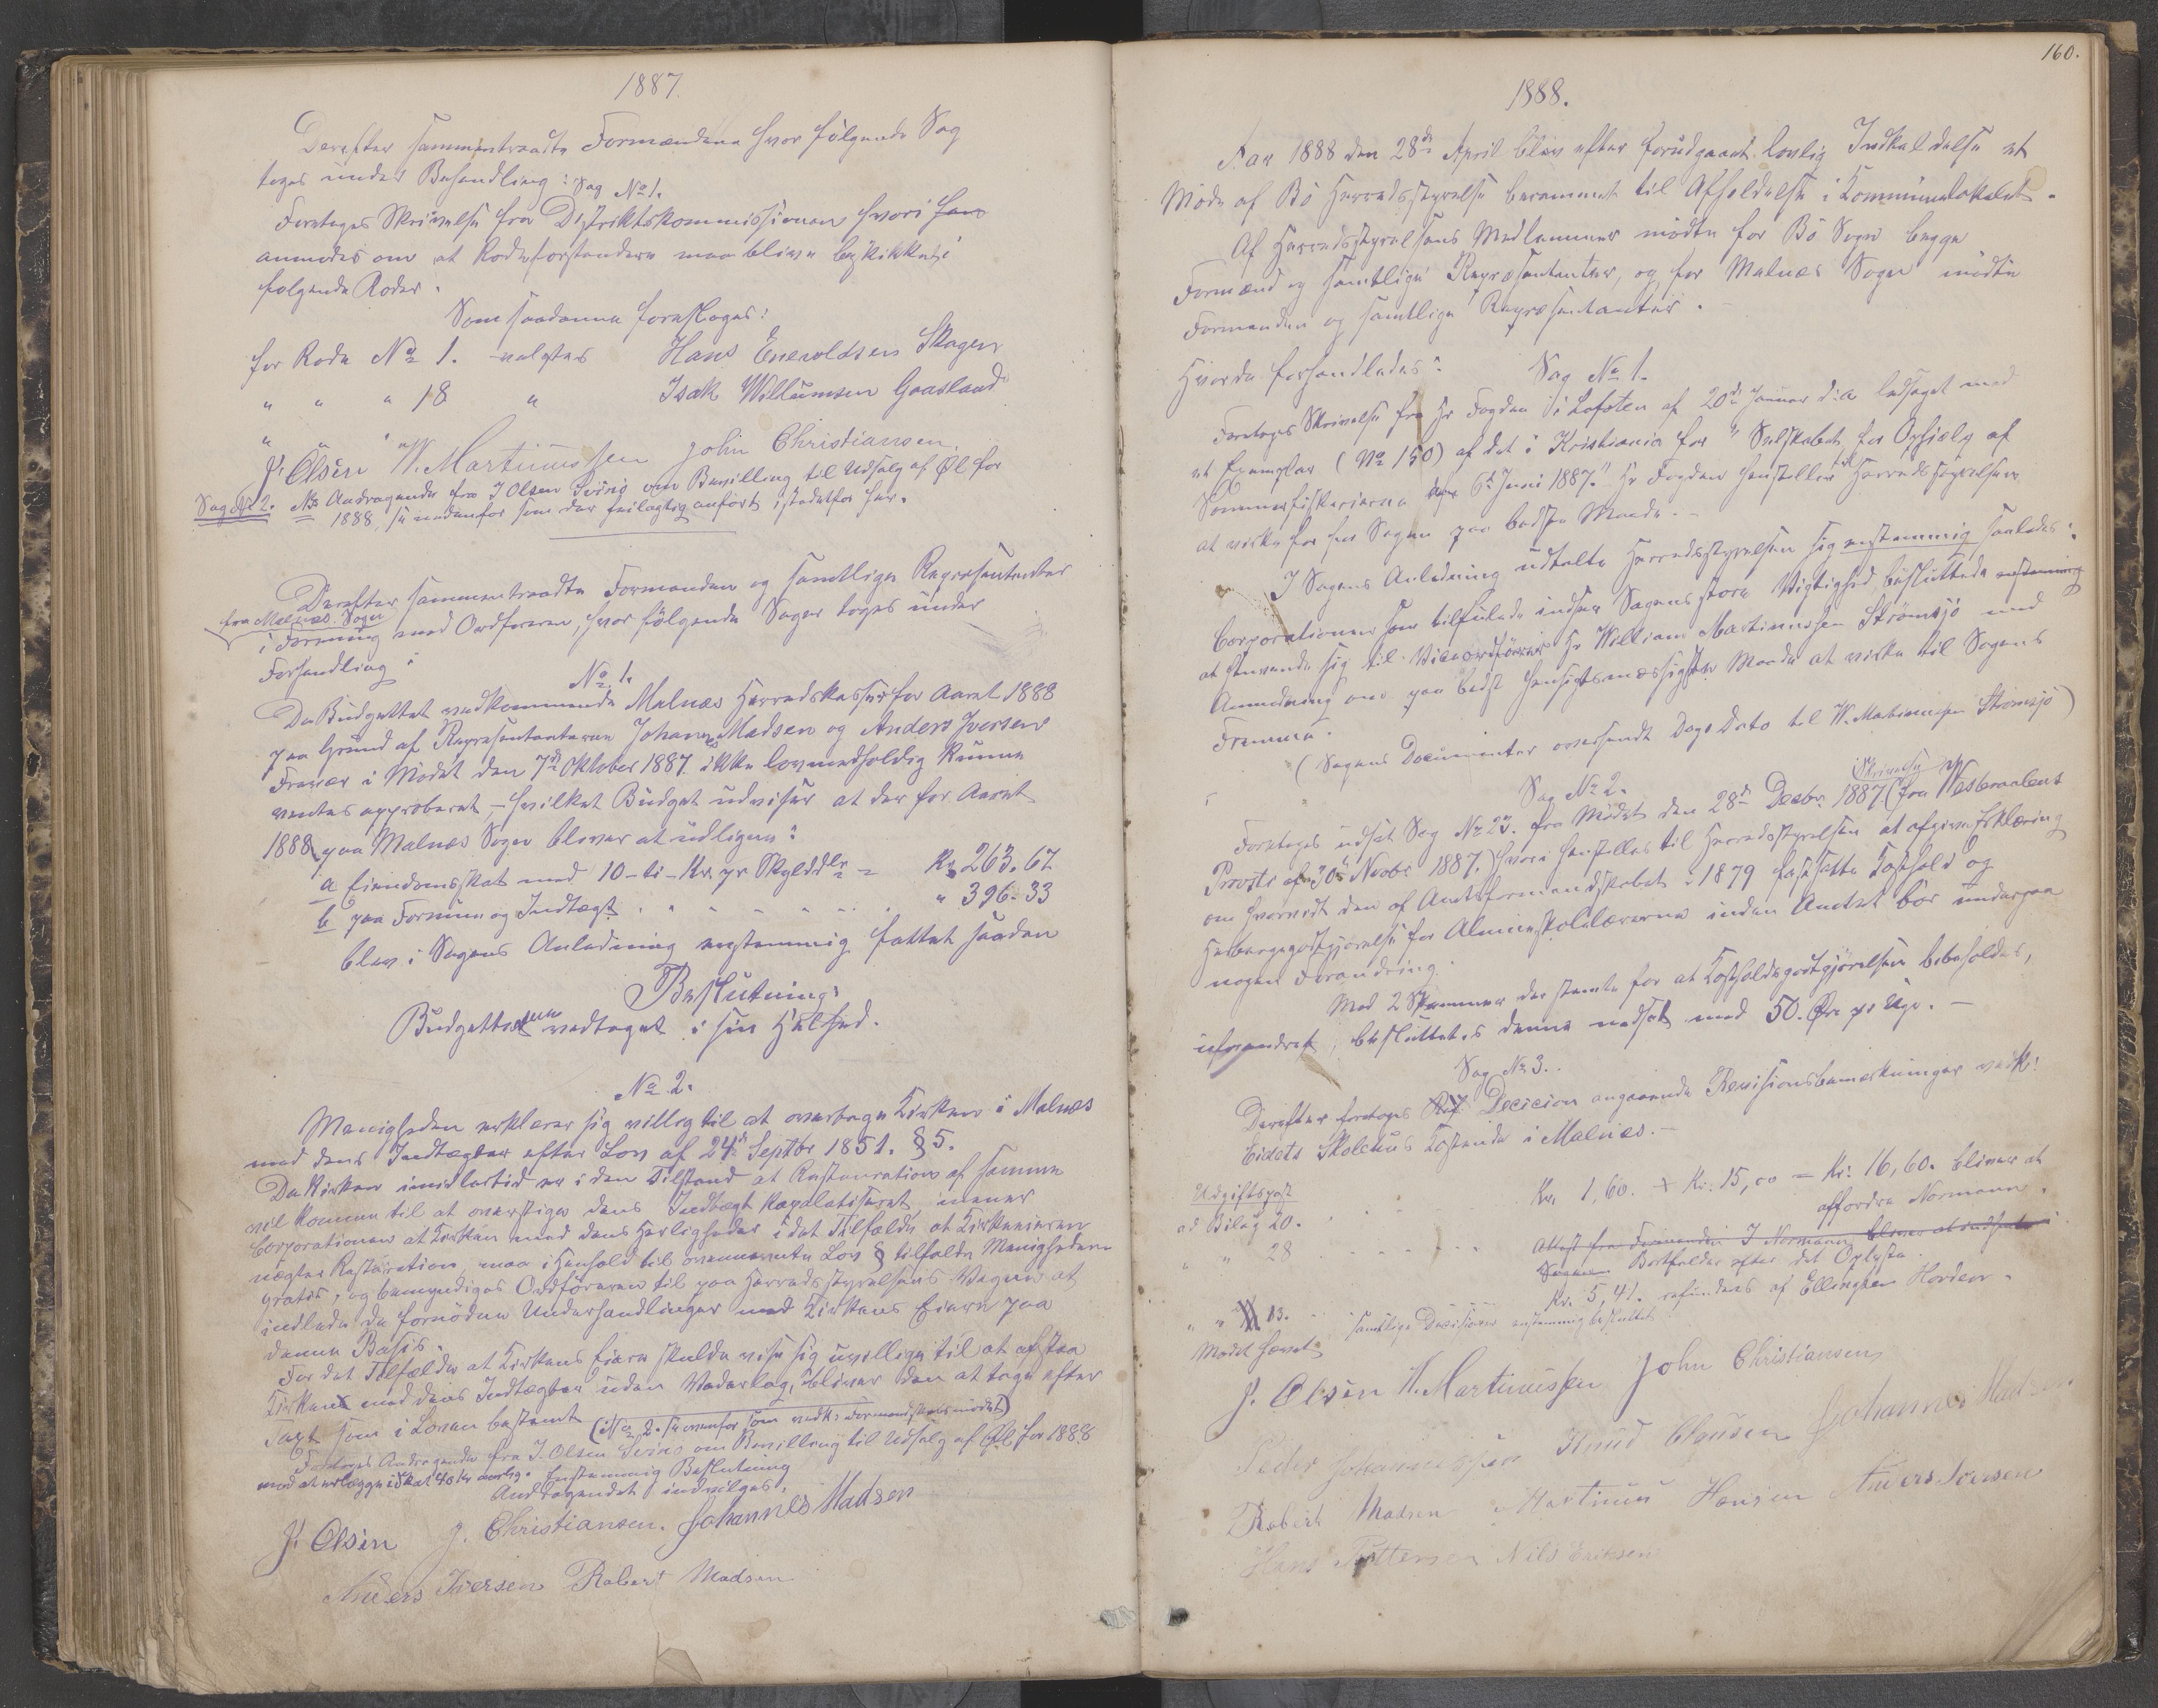 1887.
Derefter sammentraadte Formændene hvor følgende Sag
toges under Behandling: Sag No 1.
Foretoges Skrivelse fra Distriktskommissionen hvori
anmodes om at Rodeforstandere maa blive beskikket i
følgende Roder.
Som saadanne foresloges:
for Rode No 1. valgtes Hans Enevoldsen Skagen
" " " 18 " Isak Willumsen Gaasland
" " "
J. Olsen W. Martinussen John Christiansen.
Sag No 2. Andragende fra J Olsen om Bevilling til Udsalg af Øl for
1888, se nedenfor som der feilagtig anført istedetfor her.
Derefter sammentraadte Formanden og samtlige Repræsentanter
fra Malnæs Sogn
i Forening med Ordføreren, hvor følgende Sager toges under
Forhandling:
No 1.
Da Budgettet vedkommende Malnæs Herredskasse for Aaret 1888
paa Grund af Repræsentanterne Johannes Madsen og Anders Iversens
Fravær i Mødet den 7de Oktober 1887 ikke lovmedholdig kunne
ventes approberet, – hvilket Budget udviser at der for Aaret
1888 paa Malnæs Sogn bliver at udligne:
a Eiendomsskat med 10 – ti – Kr. pr Skylddlr = Kr. 263.67
b paa Formue og Indtægt . . . . . . " 396-33
blev i Sagens Anledning enstemmig fattet saadan
Beslutning:
Budgettet vedtaget i sin Helhed.
No 2.
Menigheden erklærer sig villig til at overtage Kirken i Malnæs
med dens Indtægter efter Lov af 24de Septbr 1851. § 5.
Da Kirken imidlertid er i den Tilstand at Restauration af samme
vil komme til at overstige dens Indtægt kapitaliseret mener
Corporationen at Kirken med dens Herligheder i det Tilfælde at Kirkeeieren
nægter Restauration, maa i Henhold til ovennævnte Lov § tilfalde Menigheden
gratis, og bemyndiges Ordføreren til paa Herredsstyrelsens Vegne at
indlede de fornødne Underhandlinger med Kirkens Eiere paa
denne Basis.
For det Tilfælde at Kirkens Eiere skulde vise sig uvillige til at afstaa
Kirken med dens Indtægter uden Vederlag, bliver den at tage efter
Taxt som i Loven bestemt (No 2. se ovenfor som vedk: Formandskabsmødet)
Foretoges Andragende fra J. Olsen om Bevilling til Udsalg af Øl for 1888
mod at erlægge i Skat 40 Kr aarlig. Enstemmig Beslutning
Andragendet indvilges.
J. Olsen J. Christiansen. Johannes Madsen
Anders Iversen Robert Madsen
160.
1888.
Aar 1888 den 28de April blev efter forudgaaet lovlig Indkaldelse et
Møde af Bø Herredsstyrelse berammet til Afholdelse i Kommunelokalet.
Af Herredsstyrelsens Medlemmer mødte for Bø Sogn begge
Formænd og samtlige Repræsentanter, og for Malnæs Sogn mødte
Formanden og samtlige Repræsentanter.
Hvorda forhandledes: Sag No 1.
Foretoges Skrivelse fra Hr Fogden i Lofoten af 20de Januar d:a ledsaget med
et Exemplar (No 150) af det i Kristiania for "Selskabet for Ophjælp af
Sommerfiskerierne 6te Juni 1887." Hr Fogden henstiller til Herredsstyrelsen
at virke for her Sagen paa bedste Maade. –
I Sagens Anledning udtalte Herredsstyrelsen sig enstemmig saaledes:
Corporationen som tilfulde indser Sagens store Vigtighed, besluttede enstemmig
at henvende sig til Viceordfører Hr William Martinussen Strømsjø med
Anmodning om paa bedst hensigtsmæssigste Maade at virke til Sagens
Fremme.
(Sagens Documenter oversendt Dags Dato til W. Martinussen Strømsjø)
Sag No 2.
Foretoges udsat Sag No 23. fra Mødet den 28de Decbr 1887 (Skrivelse fra Vesteraalens
Provsti af 30te Novbr 1887.) hvori henstilles til Herredsstyrelsen at afgive Erklæring
om hvorvidt den af Amtsformandskabet i 1879 fastsatte Kosthold og
Herbergegodtgjørelse for Almueskolelærerne inden Amtet bør undergaa
nogen Forandring.
Mod 2 Stemmer der stemte for at Kostholdsgodtgjørelsen bibeholdes,
uforandret, besluttedes denne nedsat med 50. Øre pr Uge. –
Sag No 3.
Derefter foretoges Decision angaaende Revisionsbemærkninger vedk:
Eidets Skolehus Kostende i Malnæs. –
Udgiftspost
ad Bilag 20. . . . Kr. 1,60. + Kr. 15,00 = Kr: 16,60. bliver at
affordre Normann.
" " 28 . . . . Attest fra Formanden J Normann bliver at indhente
Bortfalder efter det Oplyste.
" " 13. Kr. 5,41. refunderes af Ellingsen Horden.
samtlige Decisioner enstemmig besluttet
Mødet hævet
J. Olsen W. Martinussen John Christiansen
Peder Johannessen Knud Clausen Johannes Madsen
Robert Madsen Martinus Hansen Anders Iversen
Hans Pettersen Nils Eriksen